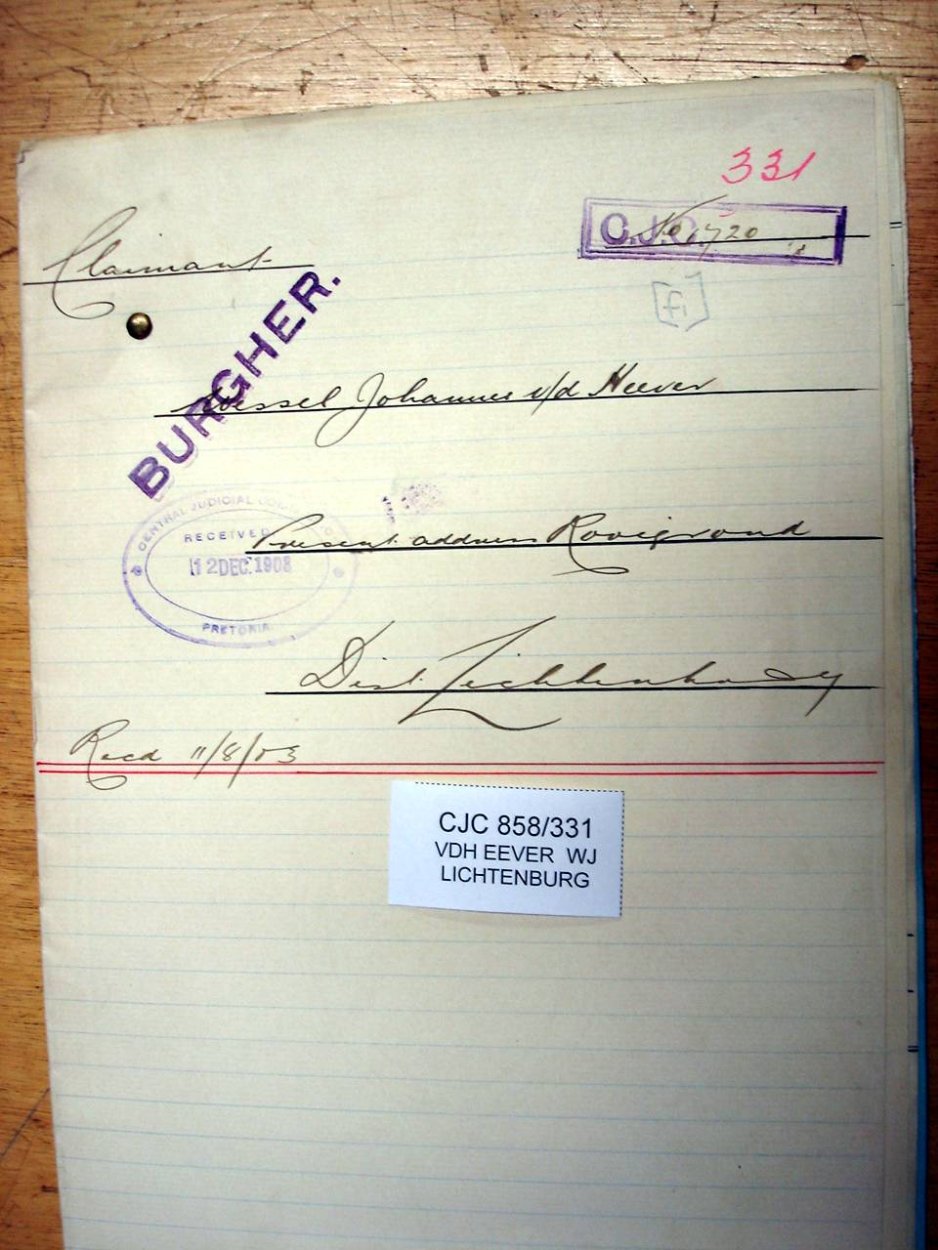 331
C.J.C.
No 1720
Claimant
[fi]
BURGHER.
Wessel Johannes v/d Heever
CENTRAL JUDICIAL
RECEIVED
12 DEC. 1903
PRETORIA
Present address Rooigrond
Dist. Lichtenburg
Recd 11/8/03
CJC 858/331
VDH EEVER WJ
LICHTENBURG